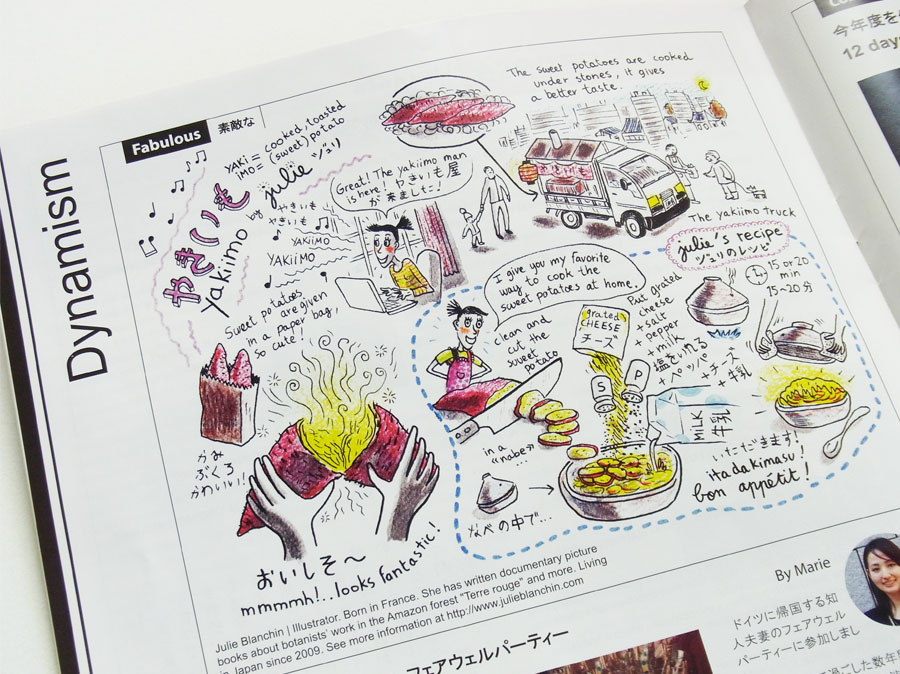 Dynamism
Fabulous
素敵な
YAKi = cooked, toasted
iMO = (sweet) potato
やきいも
Yakiimo
by julie ジュリ
やきいも
やきいも
YAKiiMO
YAKiiMO
Great! The yakiimo man
is here! やきいも屋
が来ました!
The sweet potatoes are cooked
under stones, it gives
a better taste.
The yakiimo truck
Sweet potatoes
are given
in a paper bag,
so cute!
かみ
ぶくろ
かわいい!
おいしそ〜
mmmmh!..looks fantastic!
julie's recipe
ジュリのレシピ
I give you my favorite
way to cook the
sweet potatoes at home.
clean and
cut the
sweet
potato
grated
CHEESE
チーズ
Put grated
cheese
+ salt
+ pepper
+ milk
塩をいれる
+ ペッパー
+ チーズ
+ 牛乳
S
P
MILK
牛乳
in a
"nabe"
...
なべの中で...
15 or 20
min
15~20分
いただきます!
itadakimasu!
bon appétit!
Julie Blanchin | Illustrator. Born in France. She has written documentary picture
books about botanists' work in the Amazon forest "Terre rouge" and more. Living
in Japan since 2009. See more information at http://www.julieblanchin.com
フェアウェルパーティー
今年度を
12 day
By Marie
ドイツに帰国する知
人夫妻のフェアウェル
パーティーに参加しまし
過ごした数年